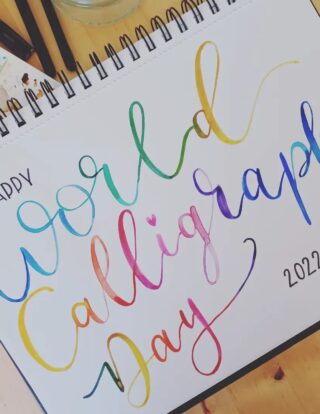 APPY
World
Calligraph
Day
2022